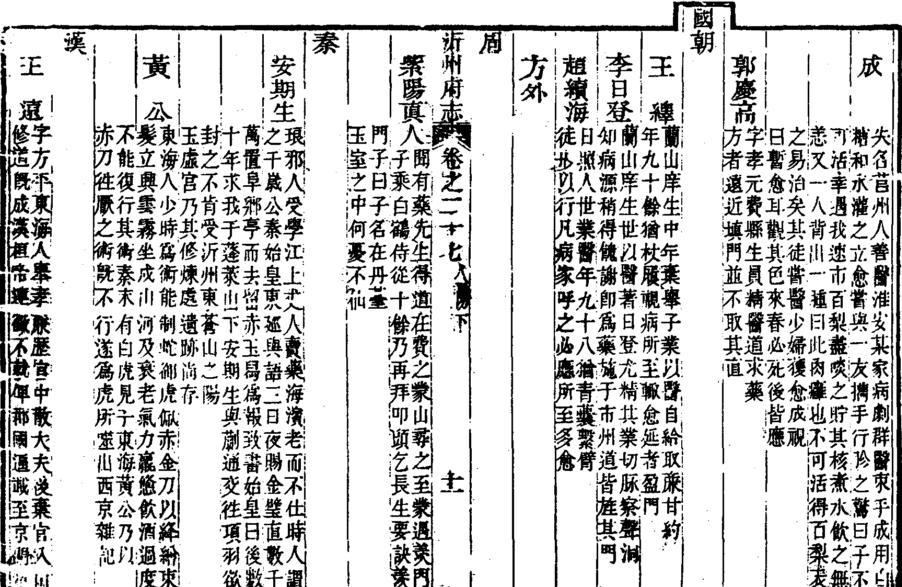 成
失名莒州人善醫淮安某家病劇群醫束手成用
糖和水灌之立愈嘗與一友攜手行胗之驚曰子不
可活幸遇我速市百梨盡啖之貯其核煮水飲之無
恙又一人背出一腫曰此肉癰也不可活得百梨
之易治矣其徒嘗醫少婦獲愈成視
曰暫愈耳觀其色來春必死後皆應
郭慶高
字孝元費縣生員精醫道求藥
方者遠近填門並不取其直
國朝
王
蘭山庠生中年棄舉子業以醫自給取廉甘約
年九十餘猶杖屨視病所至輒愈延者盈門
李日登
蘭山庠生世以醫著日登尤精其業切脉察聲洞
知病源稍得餽謝即爲藥施于市州道皆旌其門
趙續海
日照人世業醫年九十八猶青囊繫臂
徒步以行凡病家呼之必應所至多愈
方外
周
沂州府志 卷之二十七 人物下 十一
紫陽真人
聞有藥先生得道在費之蒙山尋之至蒙遇羨門
子乘白鶴侍從十餘乃再拜叩頭乞長生要訣羨
門子曰子名在丹臺
玉室之中何憂不仙
秦
安期生
琅邪人受學江上丈人賣藥海濱老而不仕時人謂
之千歲公秦始皇東遊與語三日夜賜金璧直數千
萬置阜鄉亭而去留赤玉舄爲報致書始皇曰後數
十年求我于蓬萊山下安期生與蒯通交往項羽欲
封之不肯受沂州東蒼山之陽
玉虛宮乃其修煉處遺跡尚存
漢
黃公
東海人少時爲術能制蛇御虎佩赤金刀以絳紛束
髮立興雲霧坐成山河及衰老氣力羸憊飲酒過度
不能復行其術秦末有白虎見于東海黃公乃以
赤刀往厭之術既不行遂爲虎所害出西京雜記
王遠
字方平東海人舉孝廉歷官中散大夫後棄官入
修道既成漢桓帝連徵不就俾郡國逼載至京